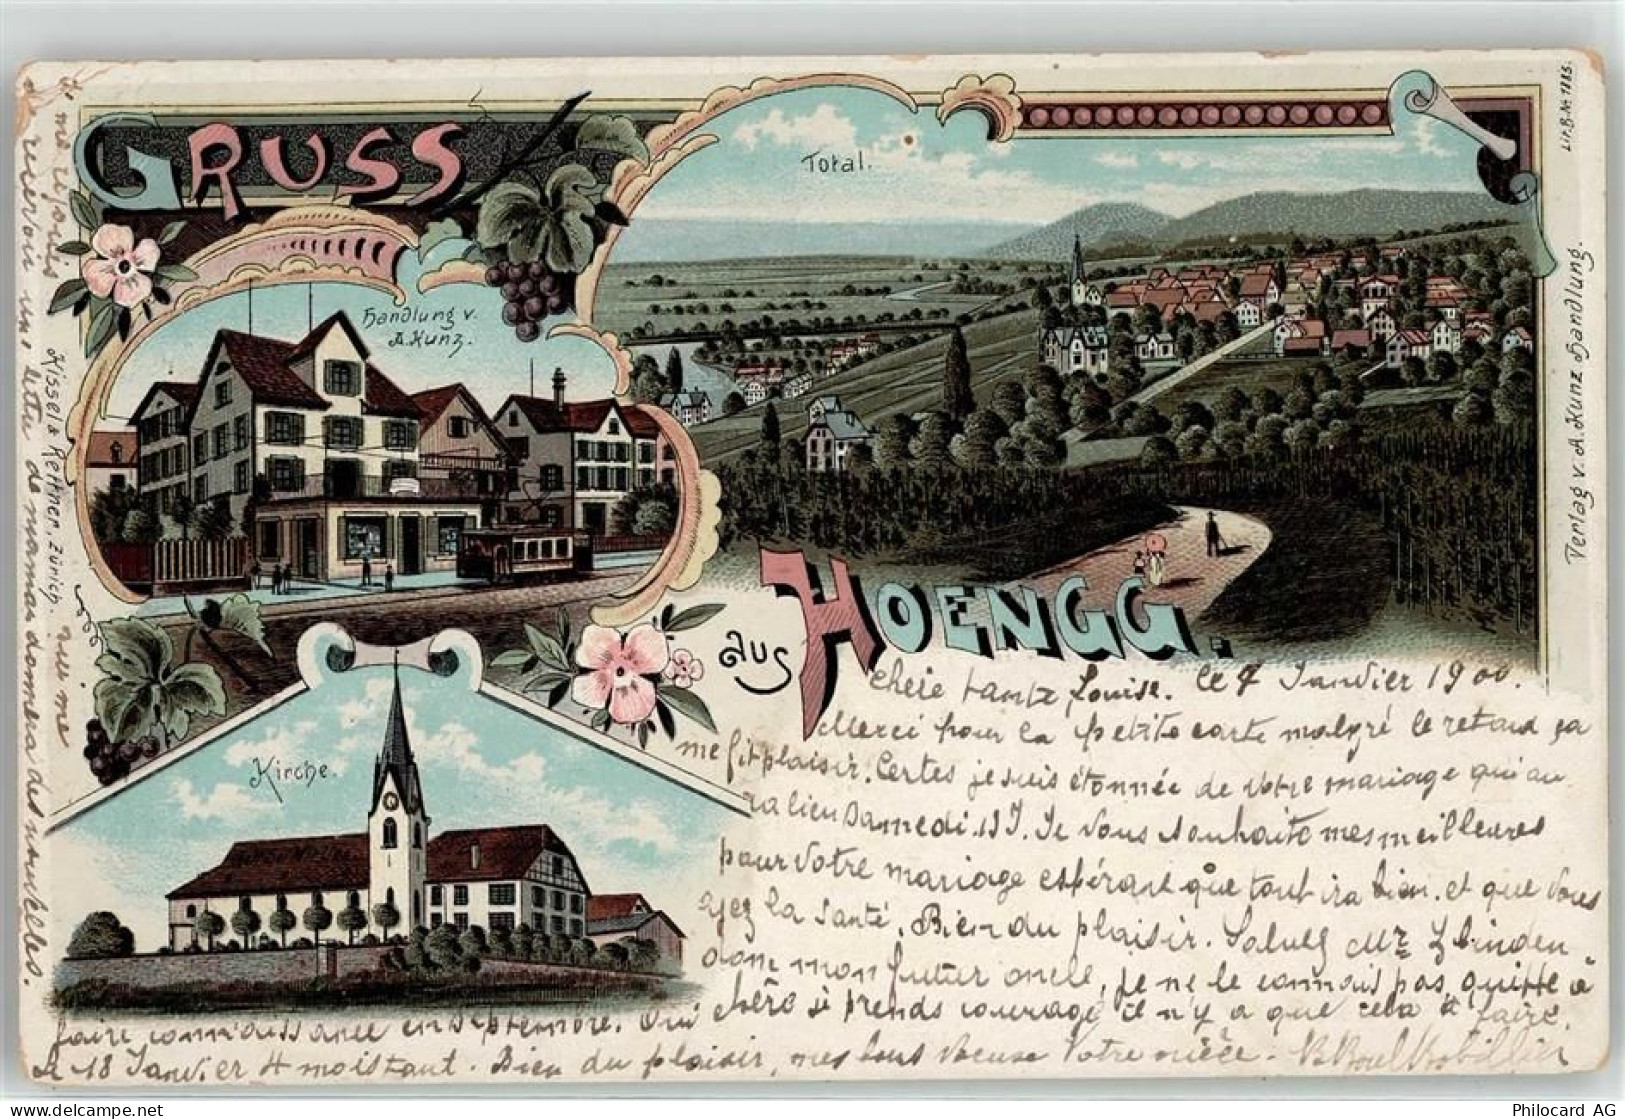 GRUSS
aus HOENGG.
Total.
Handlung v.
A. Kunz.
Kirche.
Lit. B. Nr 7885.
Verlag v. A. Kunz Handlung.
Kissel & Kettner, Zürich.
chère tante Louise. Le 7 Janvier 1900.
Merci pour la petite carte malgré le retard ça
me fit plaisir. Certes je suis étonnée de votre mariage qui au
ra lieu Samedi 13 J. Je vous souhaite mes meilleures
pour votre mariage espérant que tout ira bien. et que vous
ayez la santé. Bien du plaisir. Saluez Mr Zbinden
donc mon futur oncle, je ne le connais pas, quitte à
faire connaissance en septembre. Oui chère je prends courage il n'y a que cela à faire.
Le 18 Janvier moi tant. Bien du plaisir, mes bons vœux Votre nièce.
me réjouis
de recevoir une lettre de maman donnera des nouvelles.